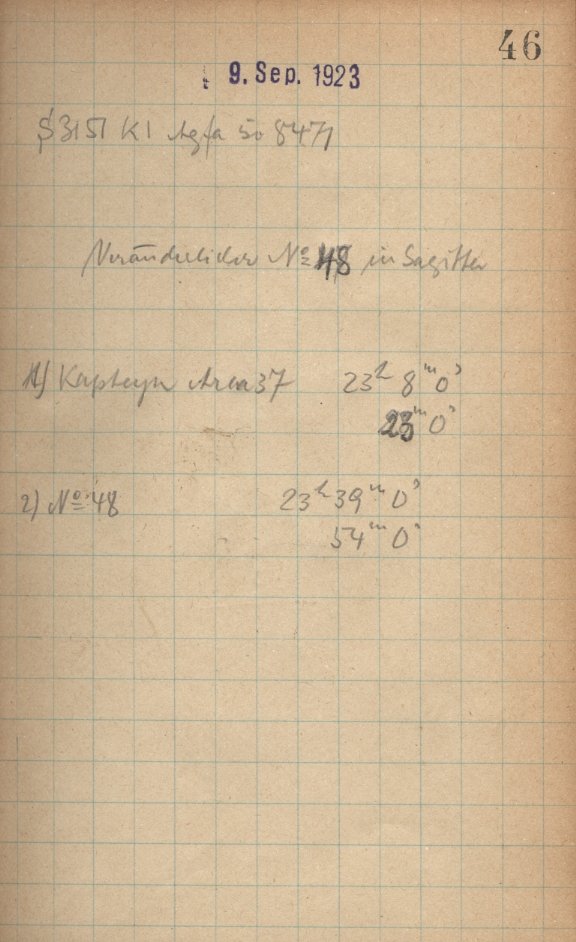 46
9. Sep. 1923
S 3151 K1 Agfa 50 8471
Veränderlicher № 48 in Sagitta
1) Kapteyn Area 37 23h 8m 0s
23m 0s
2) № 48 23h 39m 0s
54m 0s